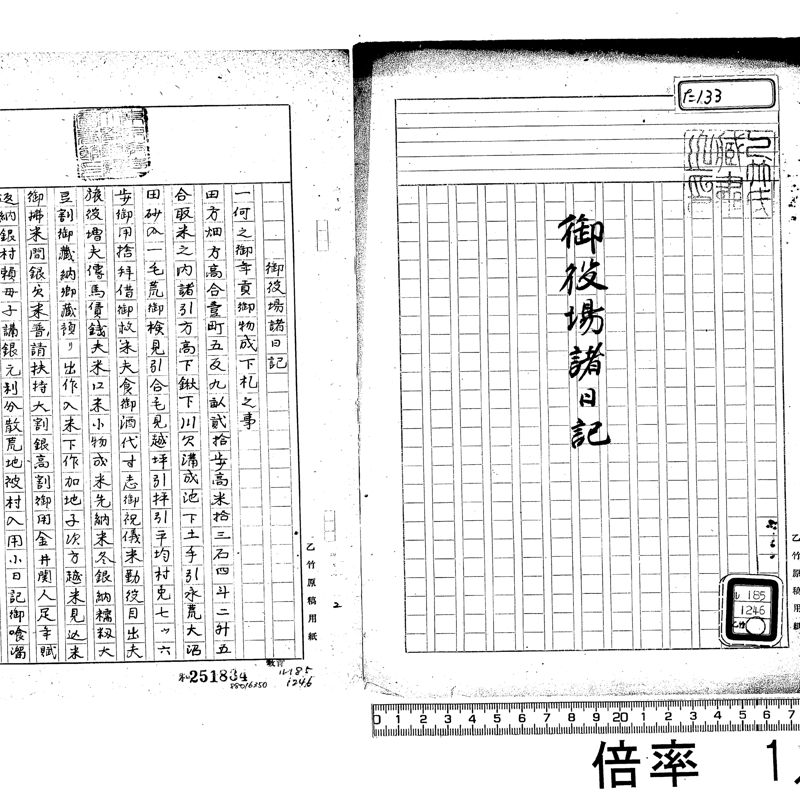 た133
御役場諸日記
乙竹原稿用紙
ル185
1246
乙竹
0 1 2 3 4 5 6 7 8 9 20 1 2 3 4 5 6 7
倍率 1
御役場諸日記
一何之御年貢御物成下札之事
田方畑方高合壹町五反九畝貳拾歩高米拾三石四斗二升五
合取米之内諸引方高下鍬下川欠溝成池下土手引永荒大沼
田砂入一毛荒御検見引合毛見越坪引拝引平均村免七ツ六
歩御用捨拝借御救米夫食御酒代寸志御祝儀米勤役目出夫
旅役増夫傳馬債錢夫米口米小物成米先納米冬銀納糯籾大
豆割御藏納御藏預リ出作入米下作加地子次方越米見込米
御拂米問銀欠米普請扶持大割銀高割御用金井関人足年賦
返納銀村頼母子講銀元利分散荒地被村入用小日記御喰溜
乙竹原稿用紙
2
和251834
教育
ル185
1246